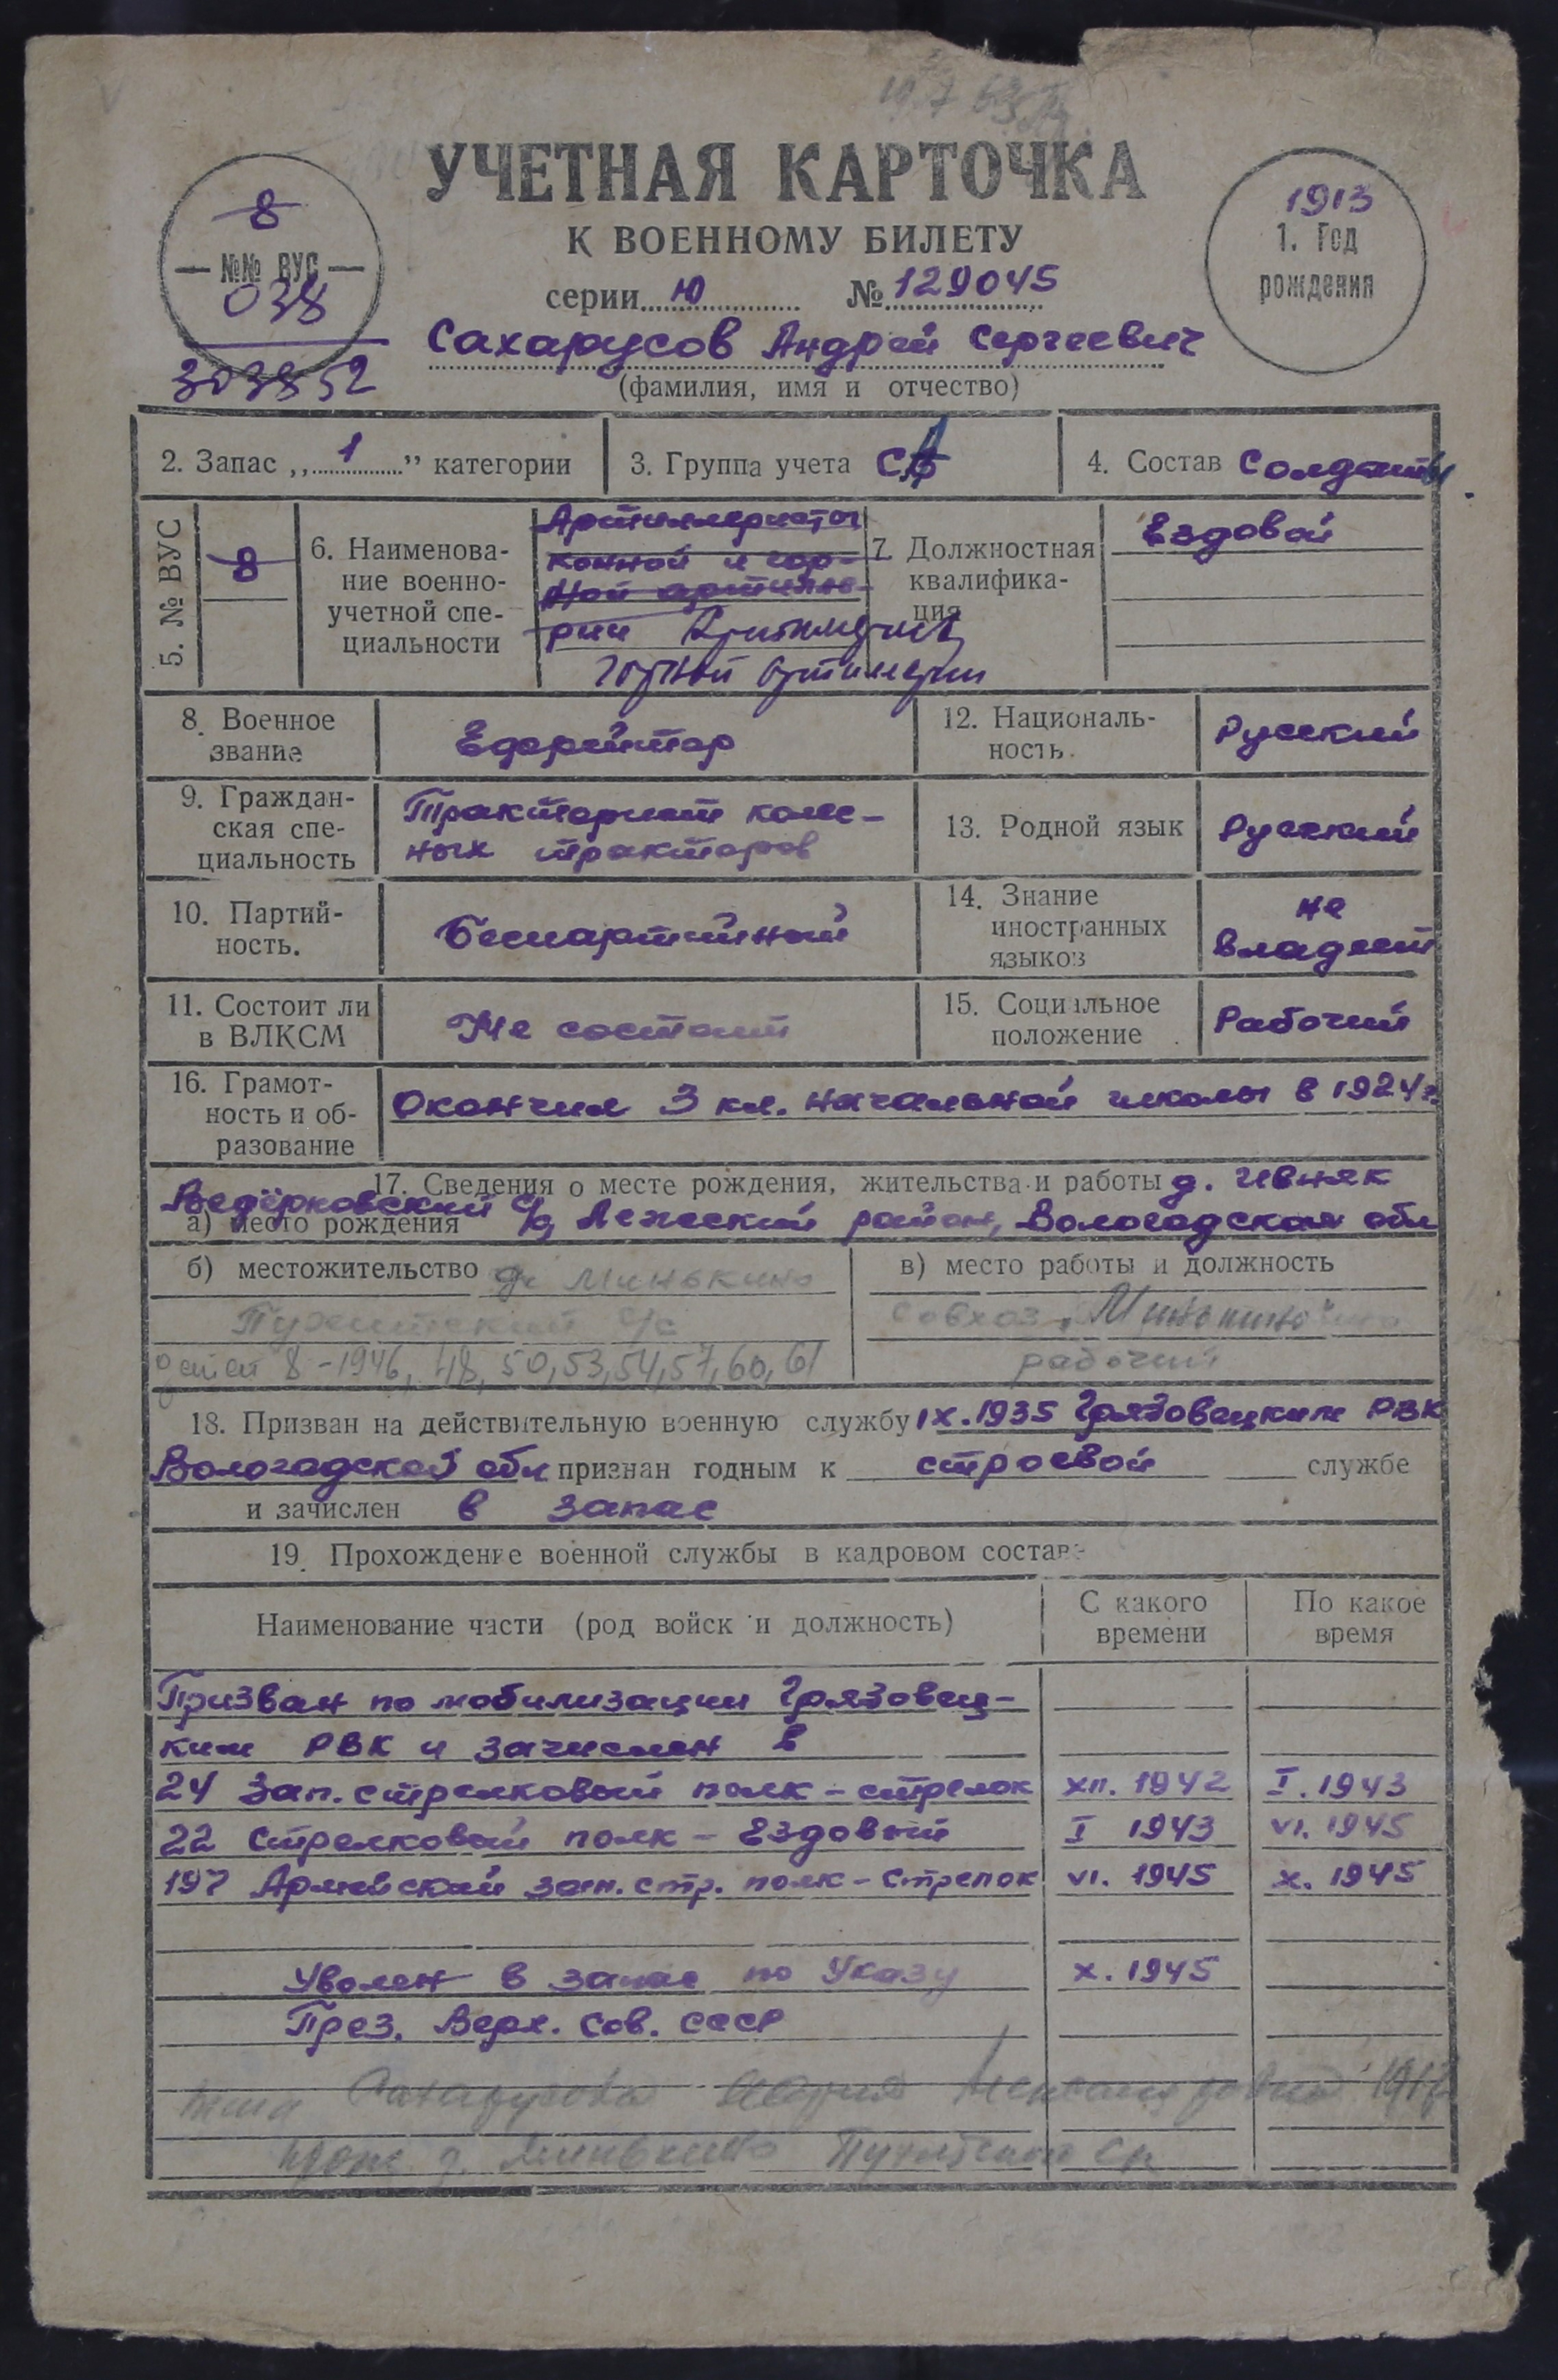 19.7 63
УЧЕТНАЯ КАРТОЧКА
К ВОЕННОМУ БИЛЕТУ
серии Ю № 129045
8
№№ ВУС
038
303852
1913
1. Год
рождения
Сахарусов Андрей Сергеевич
(фамилия, имя и отчество)
2. Запас „ 1 ” категории
3. Группа учета СА
4. Состав Солдаты
5. № ВУС
8
6. Наименова-
ние военно-
учетной спе-
циальности
Артиллеристы
конной и гор-
ной артилле-
рии Артиллерист
горной артиллерии
7. Должностная
квалифика-
ция
Ездовой
8. Военное
звание
Ефрейтор
12. Националь-
ность.
Русский
9. Граждан-
ская спе-
циальность
Тракторист колес-
ных тракторов
13. Родной язык
Русский
10. Партий-
ность.
Беспартийный
14. Знание
иностранных
языков
не
владеет
11. Состоит ли
в ВЛКСМ
Не состоит
15. Социальное
положение
Рабочий
16. Грамот-
ность и об-
разование
Окончил 3 кл. начальной школы в 1924 г.
17. Сведения о месте рождения, жительства и работы д. Ивняк
а) место рождения
Ведерковский с/с, Лежский район, Вологодская обл
б) местожительство д. Минькино
с/с
детей 8 - 1946, 48, 50, 53, 54, 57, 60, 61
в) место работы и должность
совхоз „Минькино"
рабочий
18. Призван на действительную военную службу IX.1935 Грязовецким РВК
Вологодской обл признан годным к строевой службе
и зачислен в запас
19. Прохождение военной службы в кадровом составе
Наименование части (род войск и должность)
С какого
времени
По какое
время
Призван по мобилизации Грязовец-
ким РВК и зачислен в
24 зап. стрелковый полк - стрелок XII. 1942 I. 1943
22 Стрелковый полк - Ездовый I 1943 VI. 1945
197 Армейский зап. стр. полк - Стрелок VI. 1945 X. 1945
Уволен в запас по Указу X. 1945
През. Верх. Сов. СССР
жена Сахарусова Мария Александровна
прож. д. Минькино